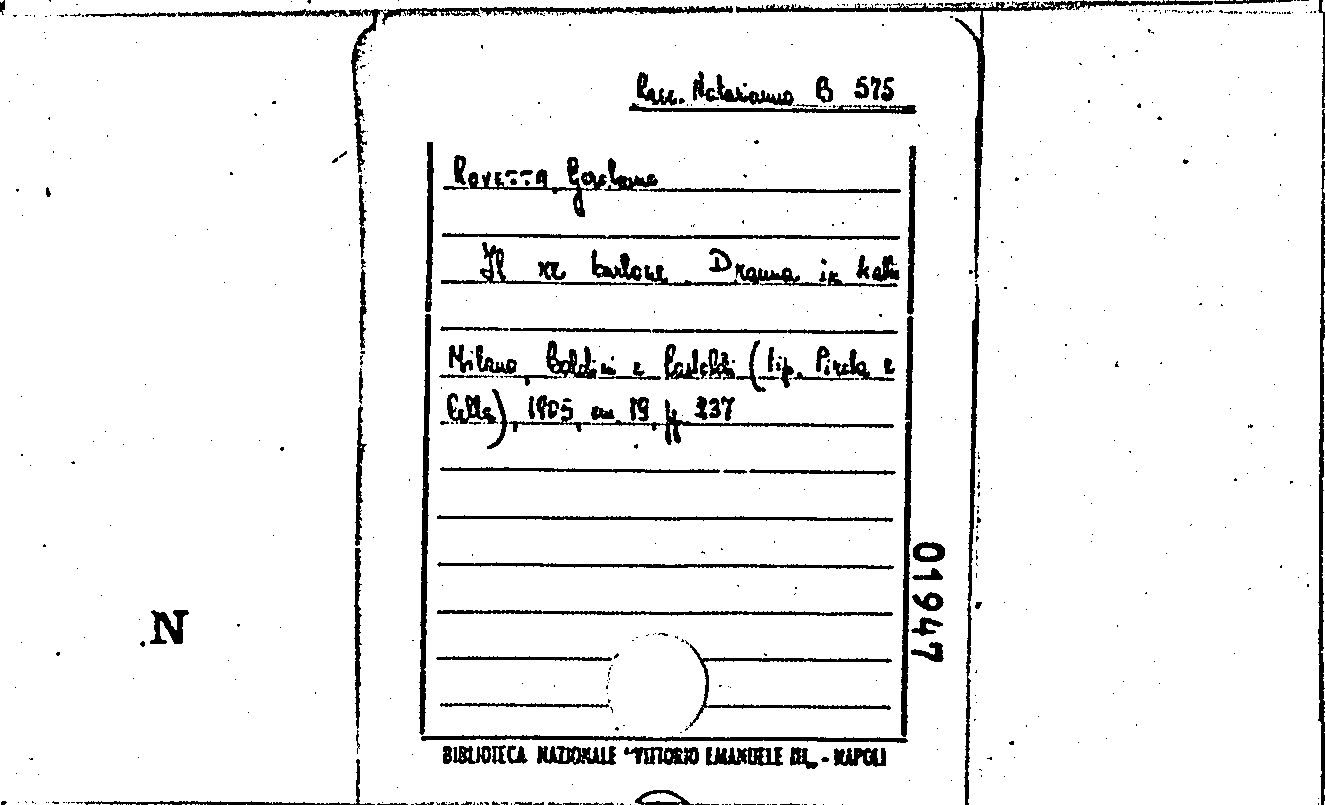 Racc. Notarianno B 575
ROVETTA, Gerolamo
Il re burlone. Drama in 4 atti
Milano, Baldini e Castoldi (tip. Pirola e
Cella), 1905, cm. 19, pp. 237
01947
N
BIBLIOTECA NAZIONALE "VITTORIO EMANUELE III" - NAPOLI